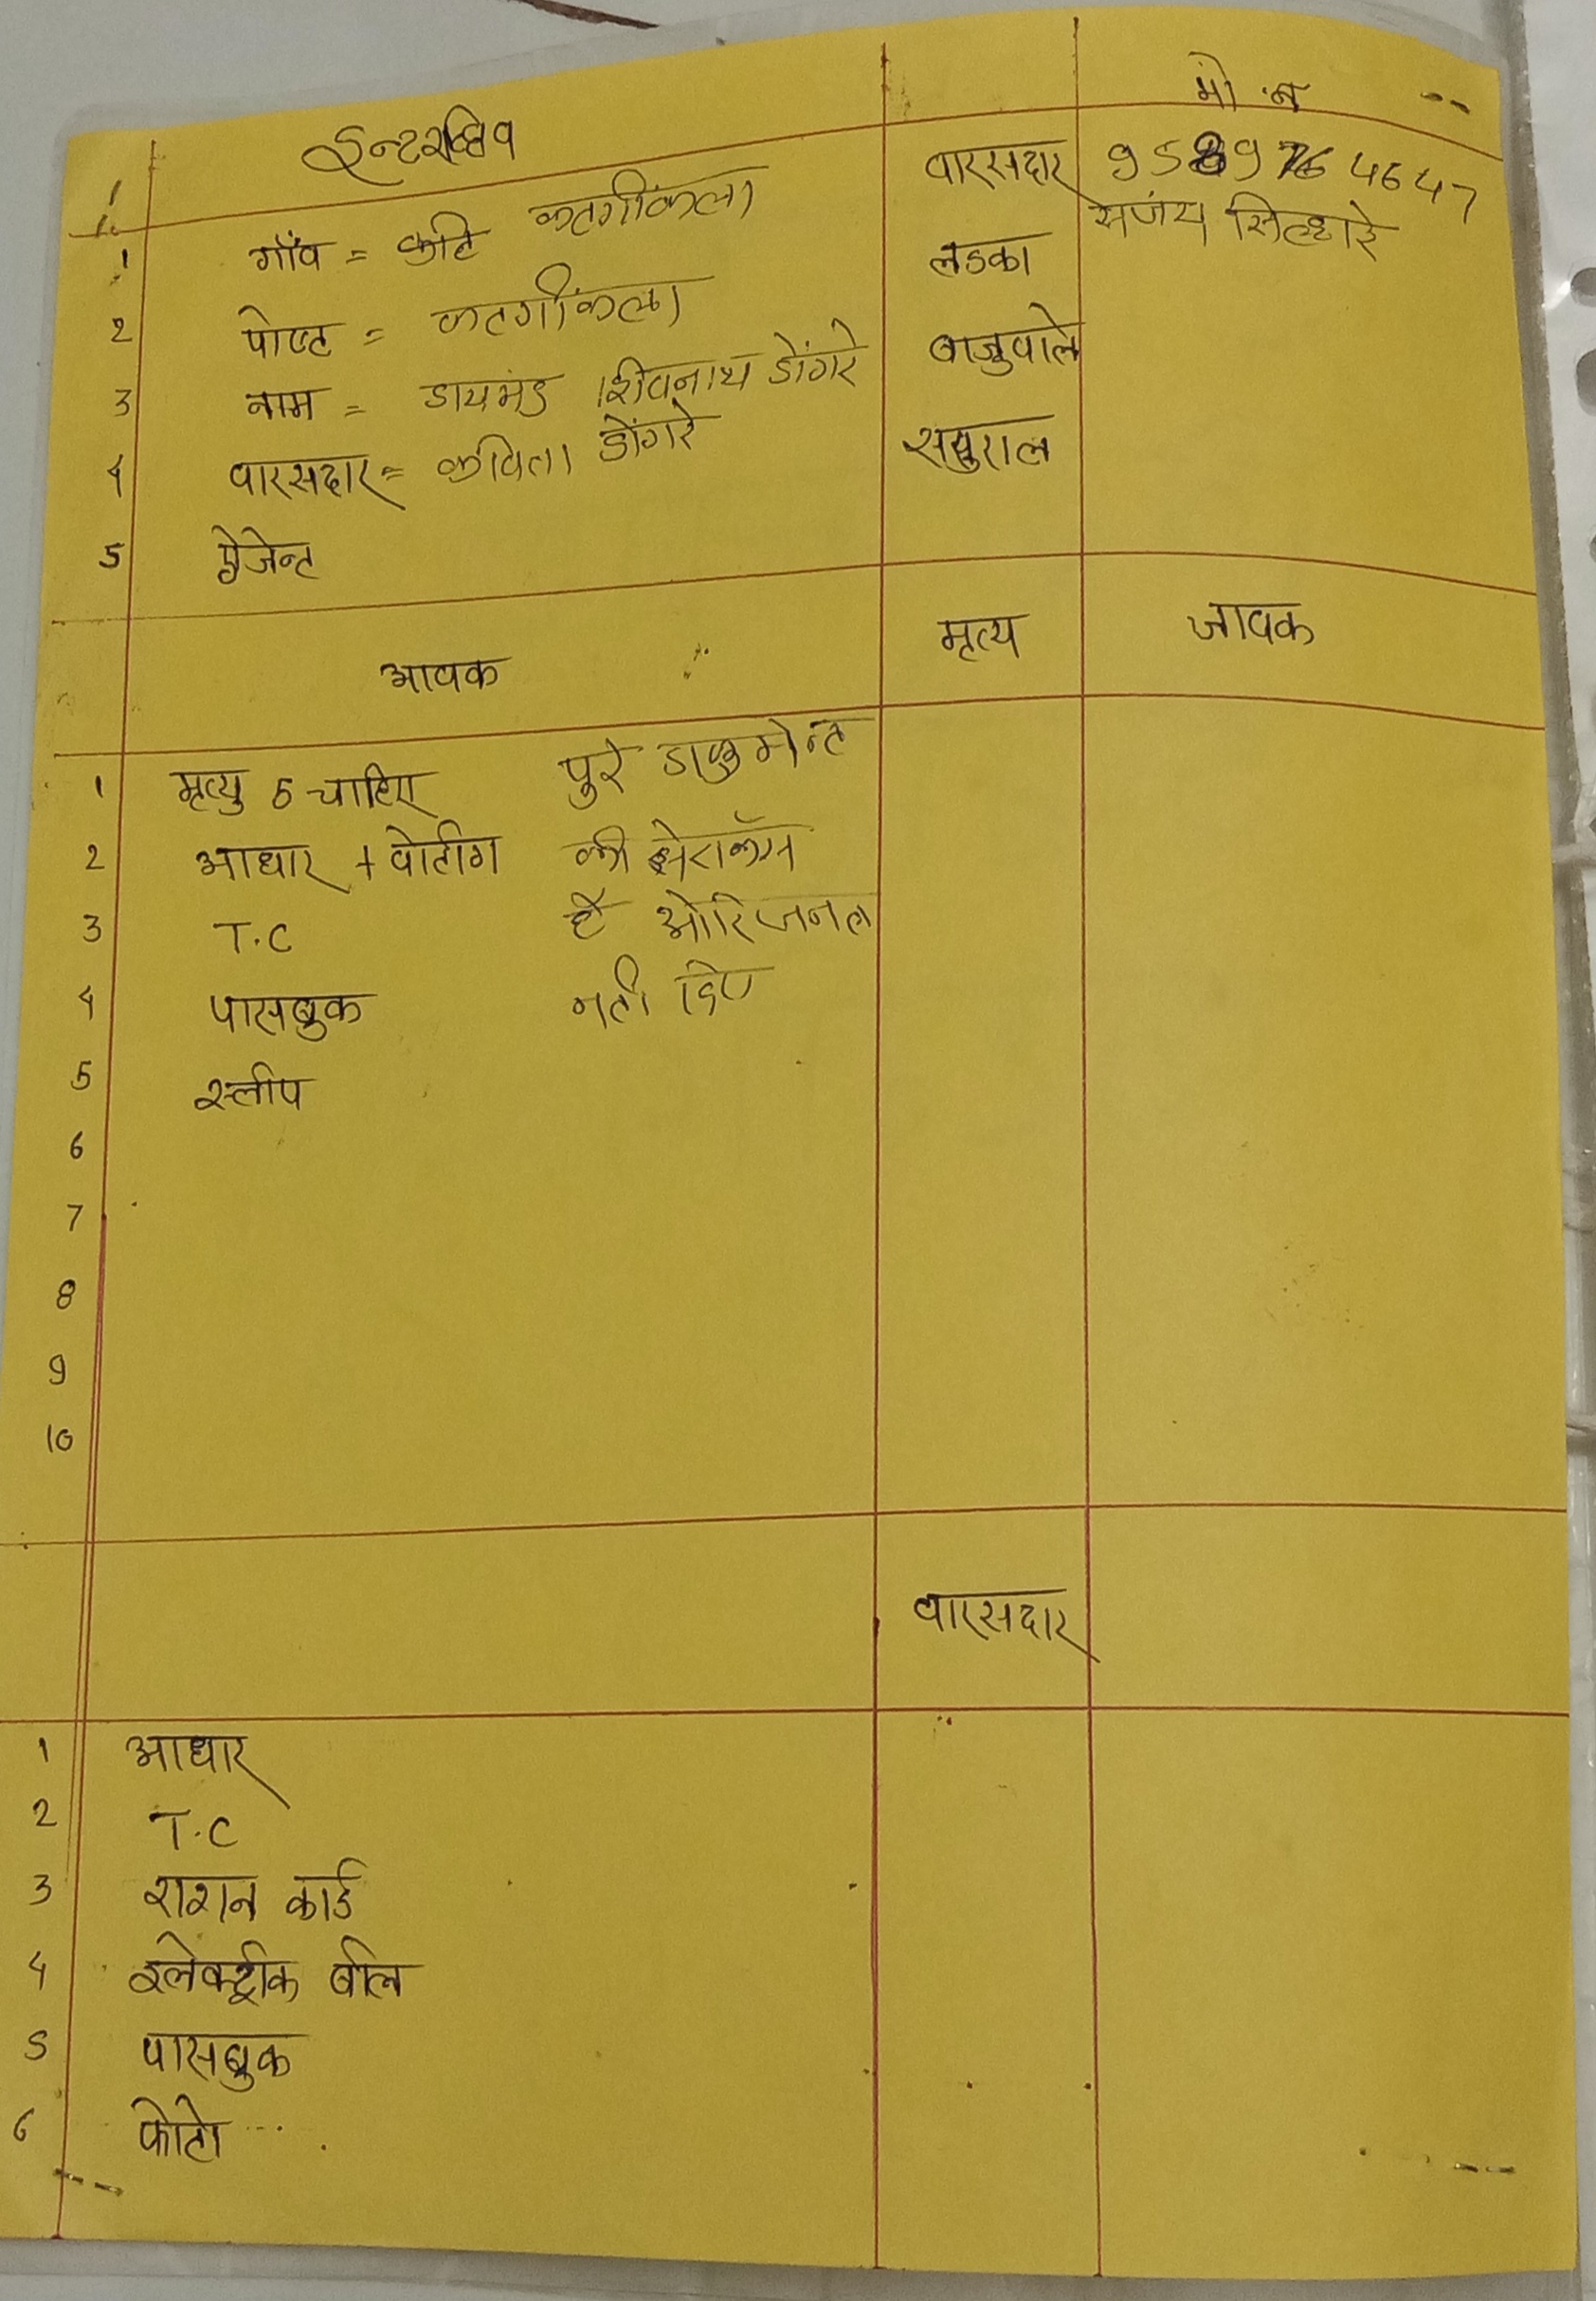 इन्टरव्हिव मो.न
1 गाँव = कटि कटगीकला वारसदार
लडका संजय सिल्हारे
2 पोष्ट = कटगीकला बाजुवाले
3 नाम = डायमंड शिवनाथ डोंगरे
4 वारसदार = कविता डोंगरे ससुराल
5 ऐजेन्ट
आवक मृत्य जावक
1 मृत्यु 5 चाहिए पुरे डाकुमेन्ट
2 आधार + वोटीग की झेराकॅस
3 T.C है ओरिजनल
4 पासबुक नही दिए
5 स्लीप
6
7
8
9
10
वारसदार
1 आधार
2 T.C
3 राशन कार्ड
4 इलेक्ट्रीक बील
5 पासबुक
6 फोटो